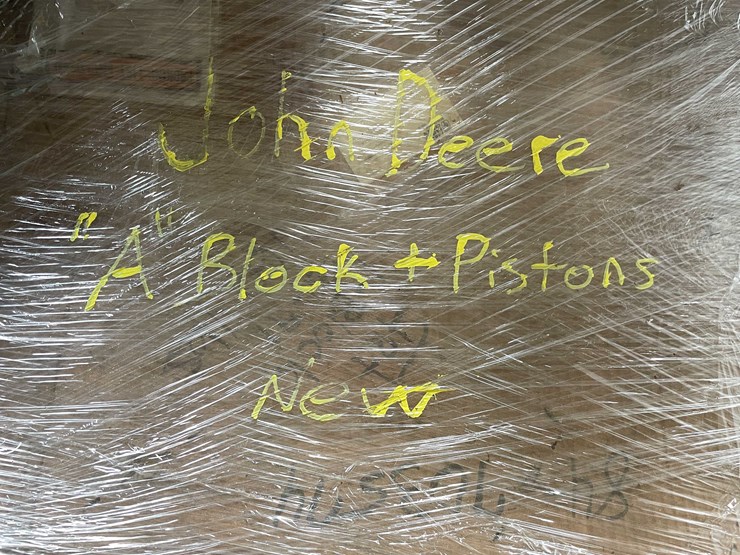 John Deere
"A" Block + Pistons
New